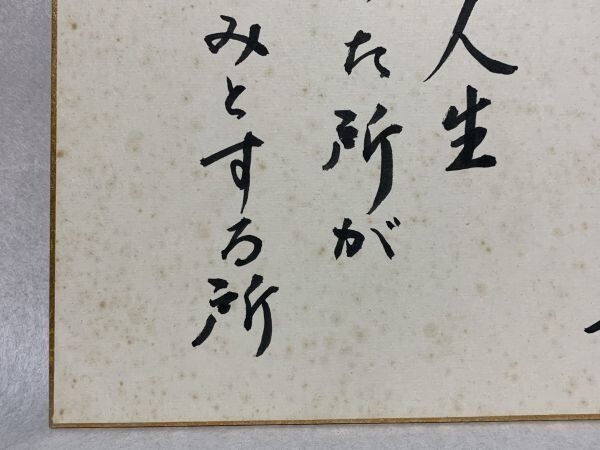 人生
た所が
みとする所